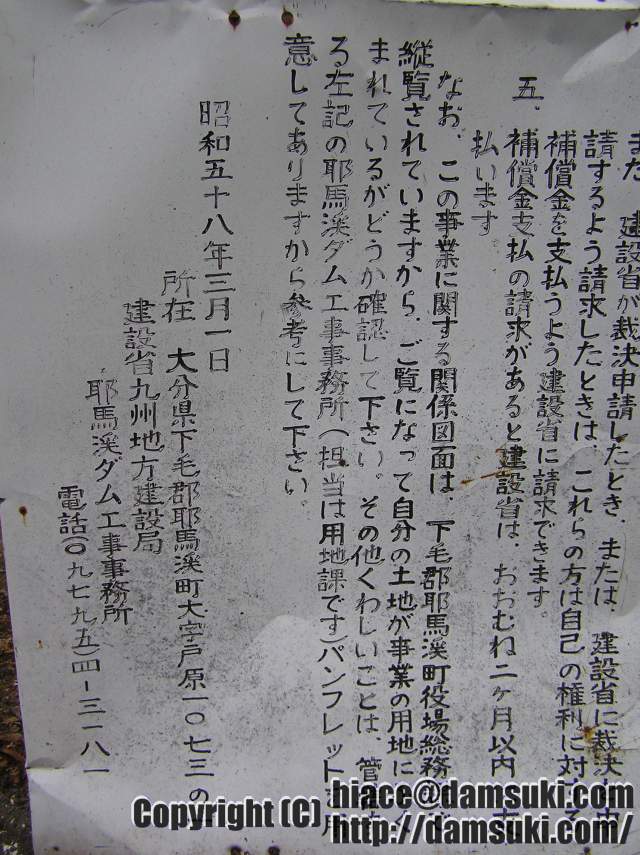 また 建設省が裁決申請したとき、または、建設省に裁決申
請するよう請求したときは、これらの方は自己の権利に対する
補償金を支払うよう建設省に請求できます。
五、補償金支払の請求があると建設省は、おおむね二ヶ月以内
払います
なお、この事業に関する関係図面は、下毛郡耶馬渓町役場総務
縦覧されていますから、ご覧になって自分の土地が事業の用地に
まれているがどうか確認して下さい。その他くわしいことは
る左記の耶馬渓ダム工事事務所（担当は用地課です）パンフレット
意してありますから参考にして下さい。
昭和五十八年三月一日
所在 大分県下毛郡耶馬渓町大字戸原一〇七三の
建設省九州地方建設局
耶馬渓ダム工事事務所
電話（〇九七九五）四-三一八一
Copyright (C) hiace@damsuki.com
http://damsuki.com/